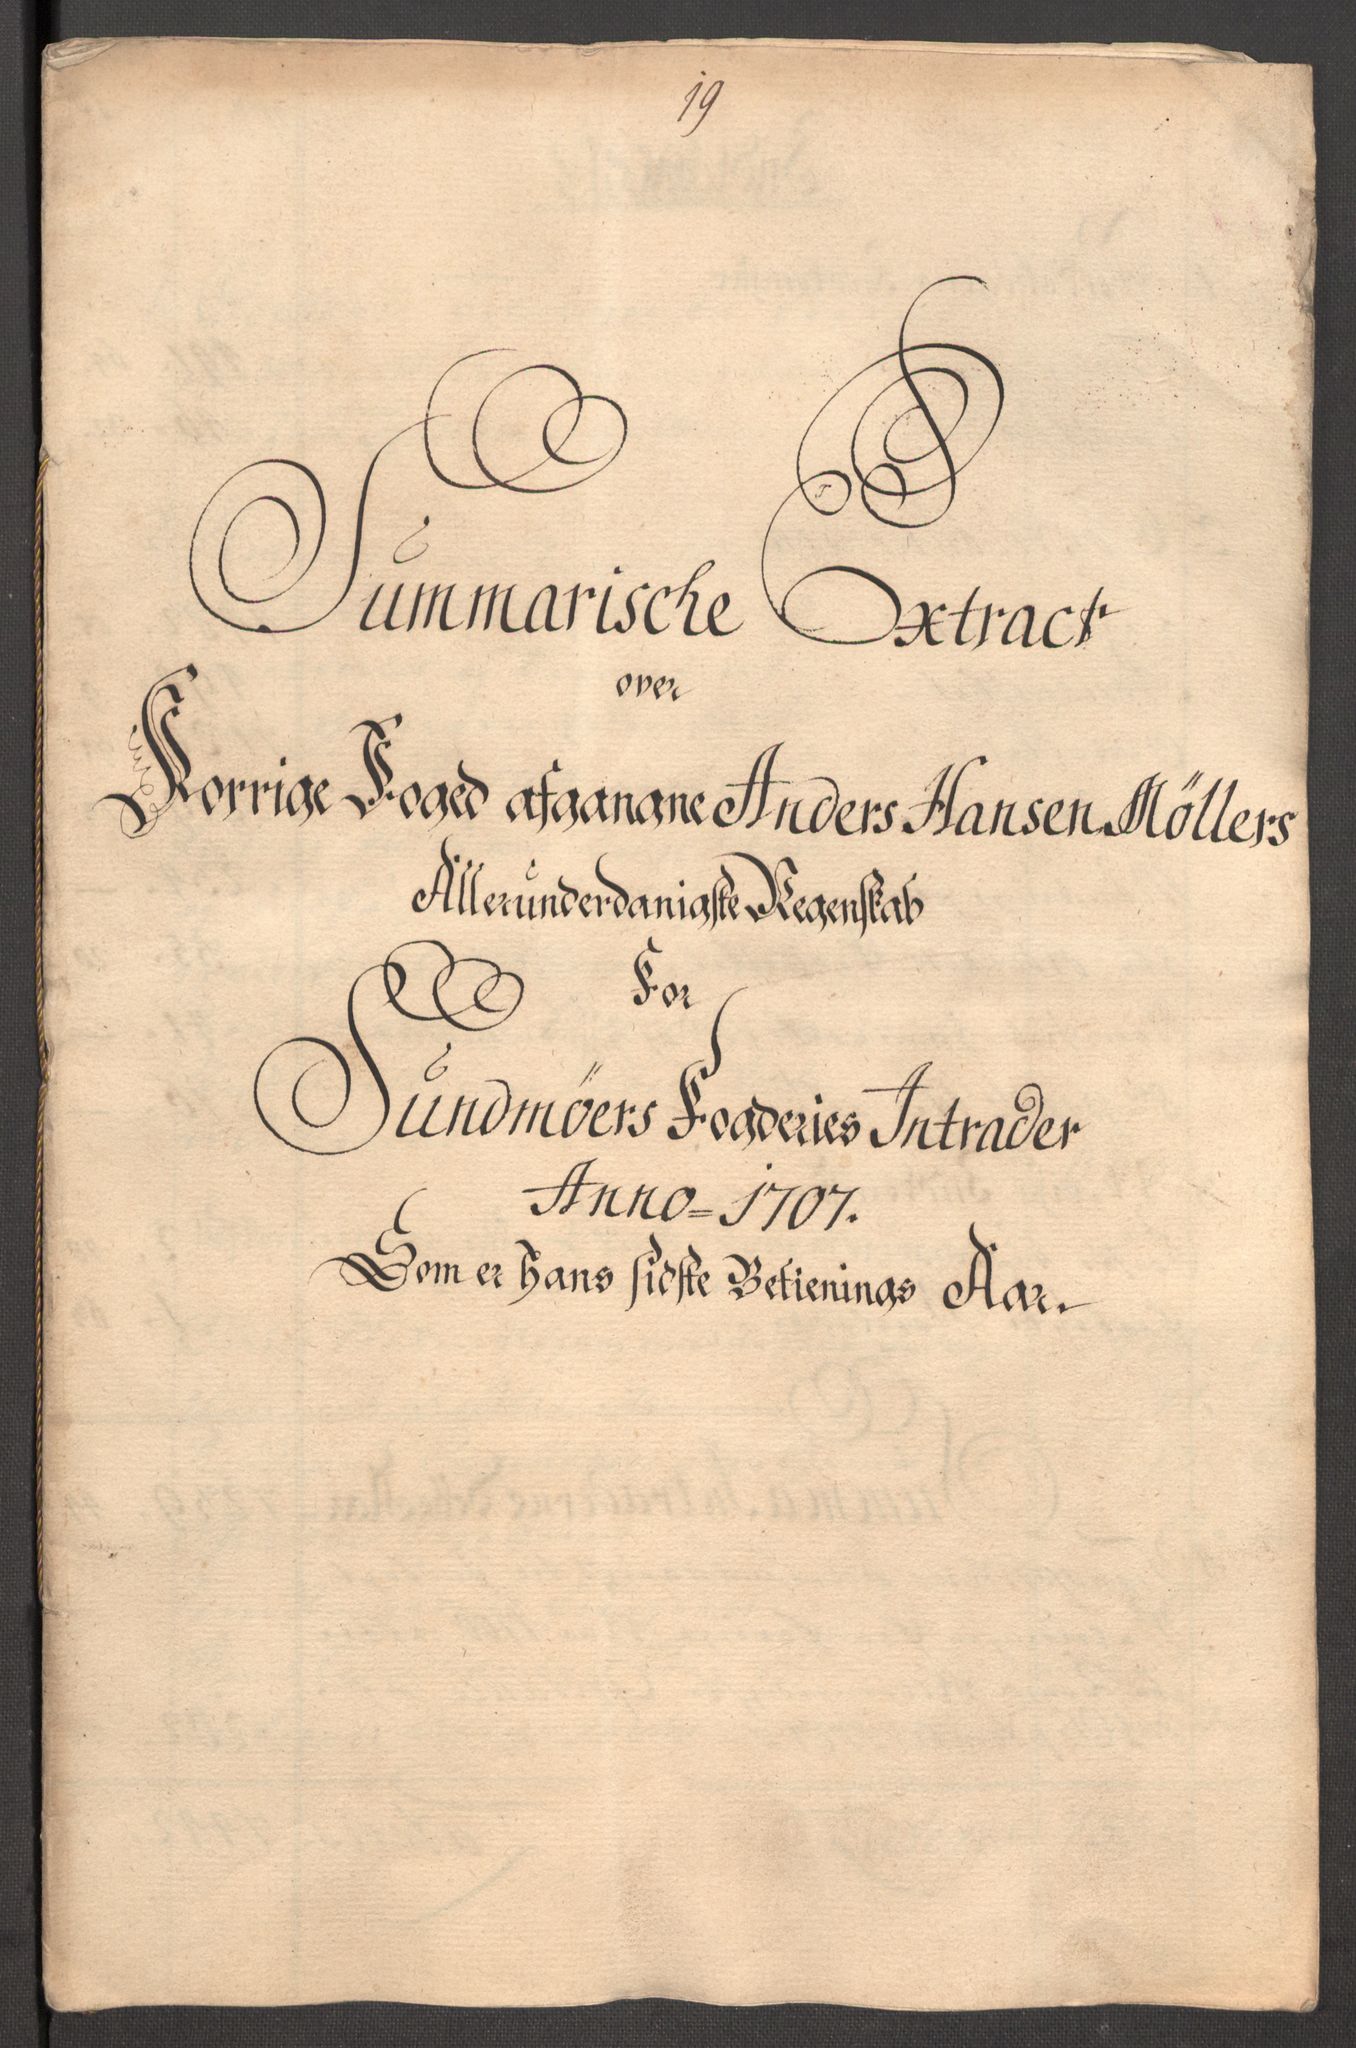 19
Summarische Extract
over
Forrige Foged afgangne Anders Hansen Möllers
Allerunderdanigste Regenskab
For
Sundmöers Fogderies Intrader
Anno = 1707.
Som er hans sidste Betienings Aar.